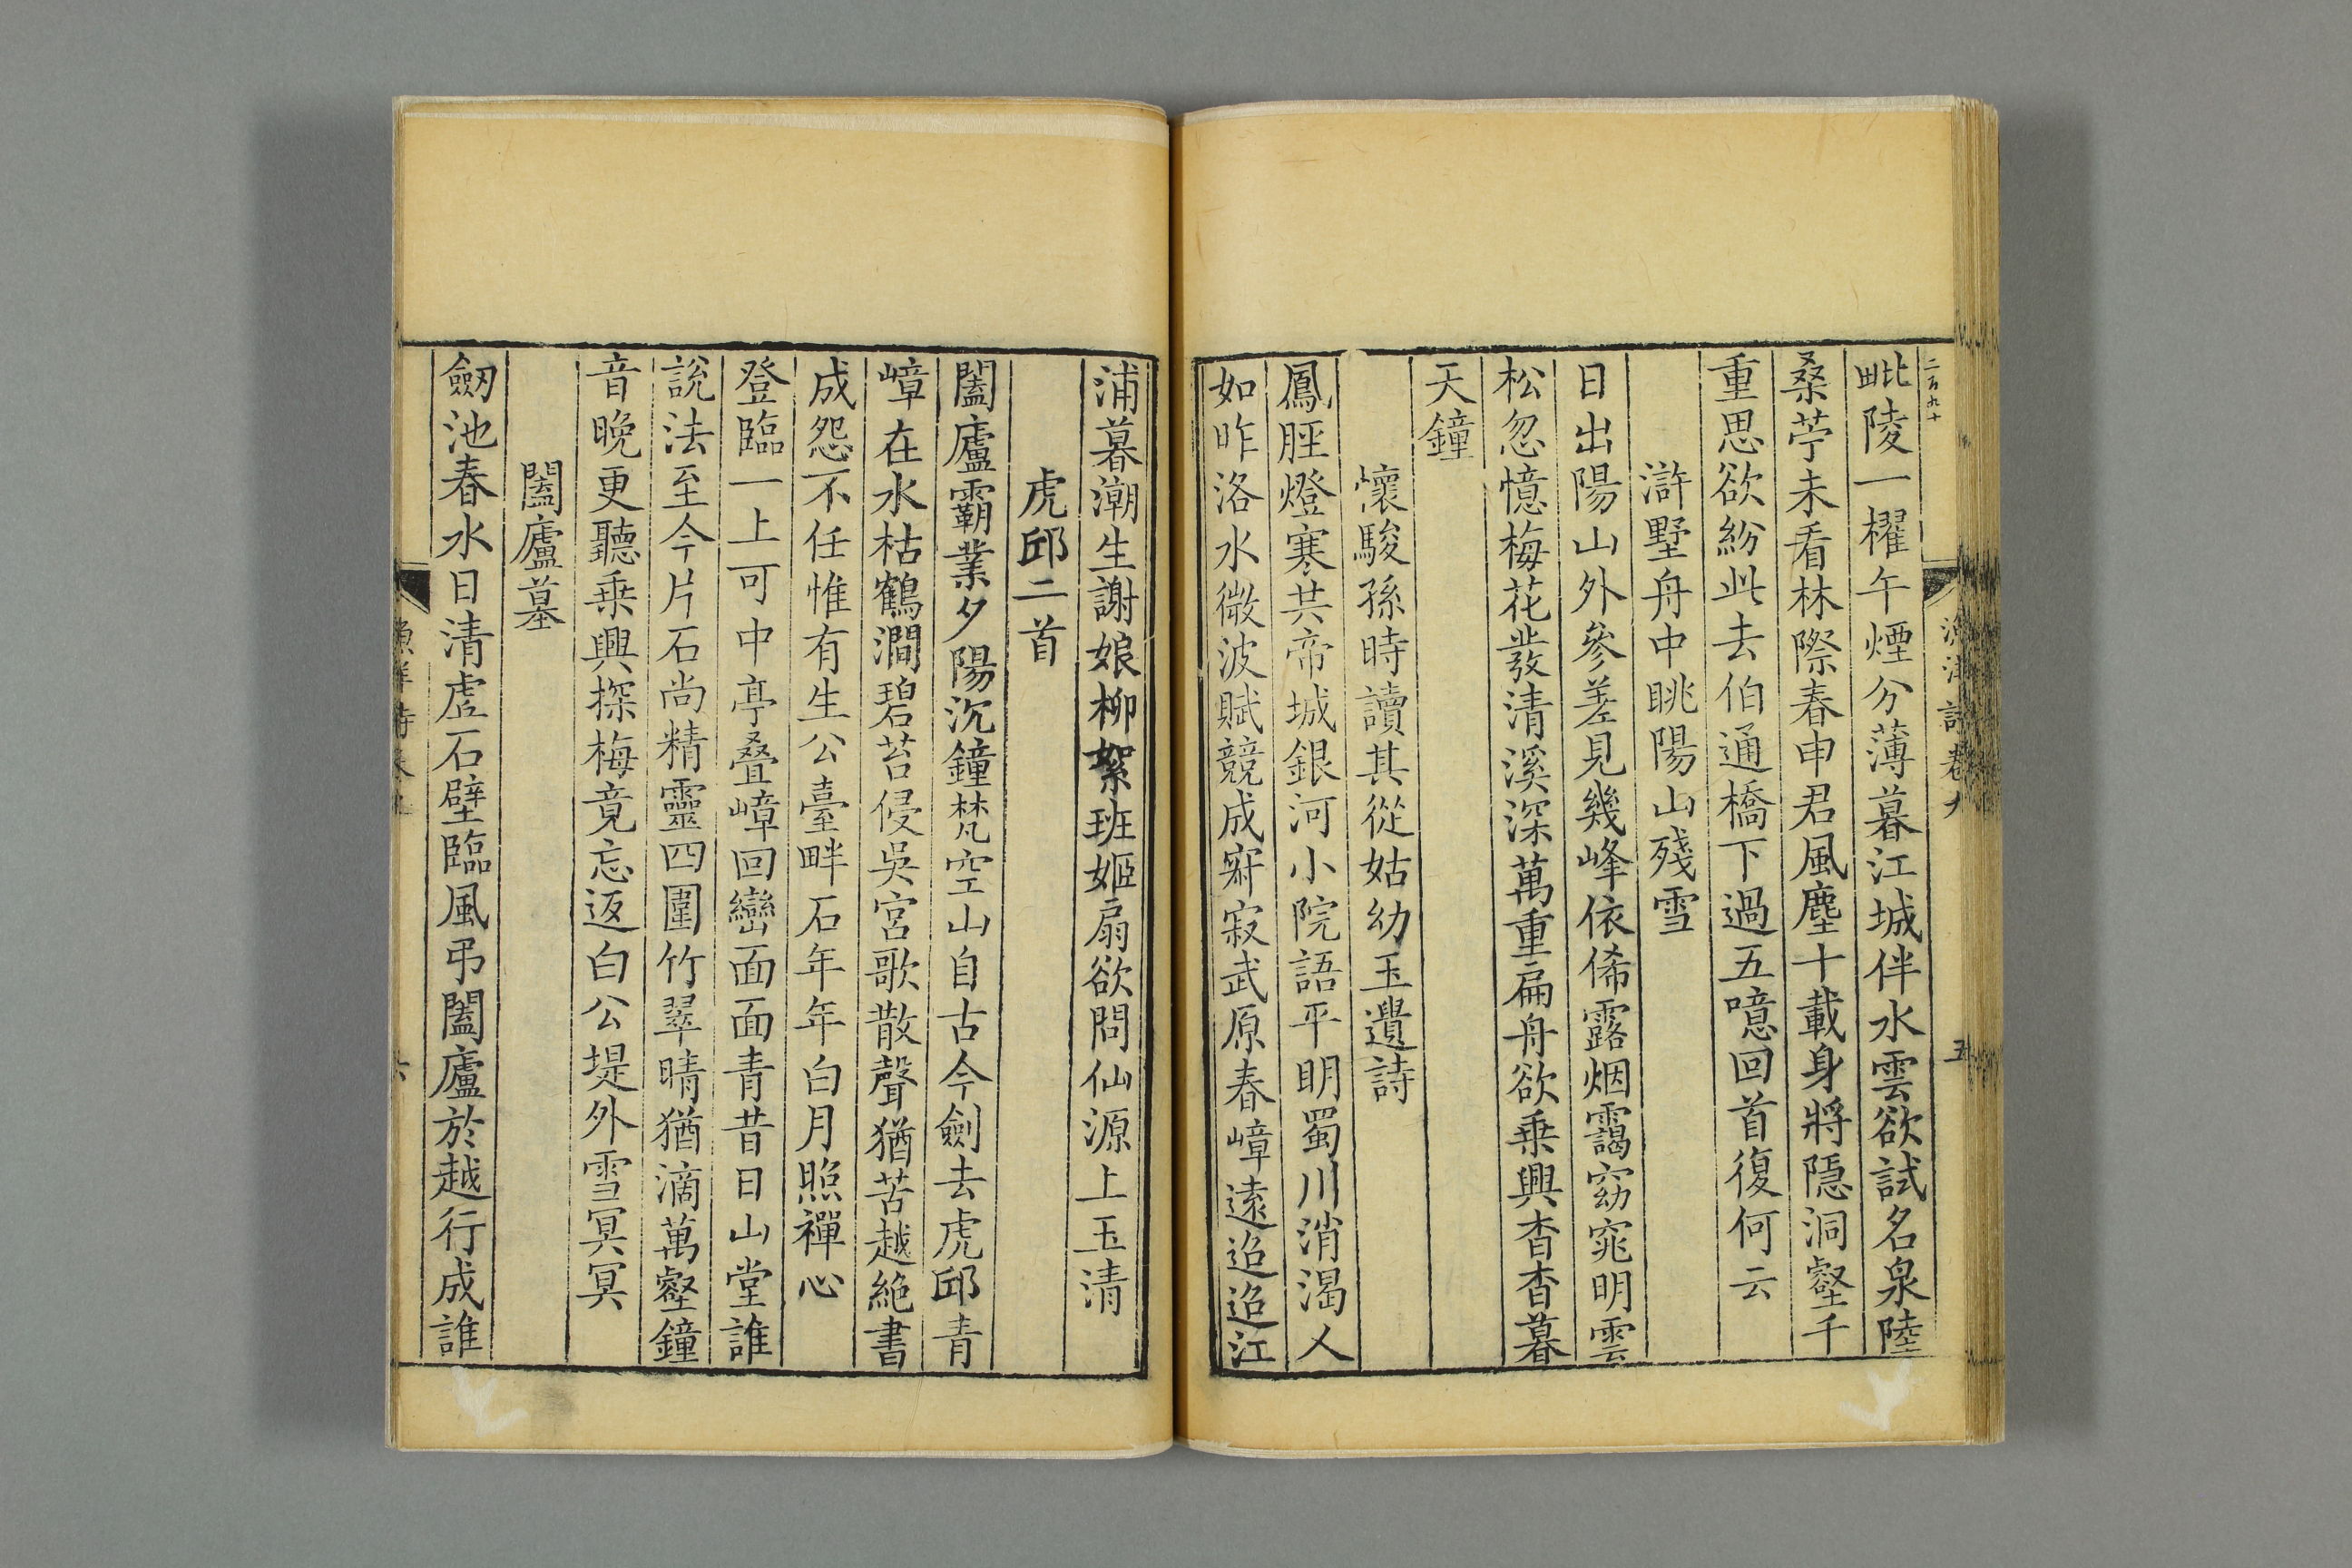 二百九十
漁洋詩卷九
五
毗陵一櫂午煙分薄暮江城伴水雲欲試名泉陸
桑苧未看林際春申君風塵十載身將隱洞壑千
重思欲紛此去伯通橋下過五噫回首復何云
滸墅舟中眺陽山殘雪
日出陽山外參差見幾峰依俙露烟靄窈窕明雲
松忽憶梅花發清溪深萬重扁舟欲乗興杳杳暮
天鐘
懷駿孫時讀其從姑幼玉遺詩
鳳脛燈寒共帝城銀河小院語平明蜀川消渴人
如昨洛水微波賦競成寂寂武原春嶂遠迢迢江
浦暮潮生謝娘柳絮班姬扇欲問仙源上玉清
虎邱二首
闔廬霸業夕陽沉鐘梵空山自古今劍去虎邱青
嶂在水枯鶴澗碧苔侵吳宮歌散聲猶苦越絶書
成怨不任惟有生公臺畔石年年白月照禪心
登臨一上可中亭叠嶂回巒面面青昔日山堂誰
說法至今片石尚精靈四圍竹翠晴猶滴萬壑鐘
音晚更聽乗興探梅竟忘返白公堤外雪冥冥
闔廬墓
劒池春水日清虛石壁臨風弔闔廬於越行成誰